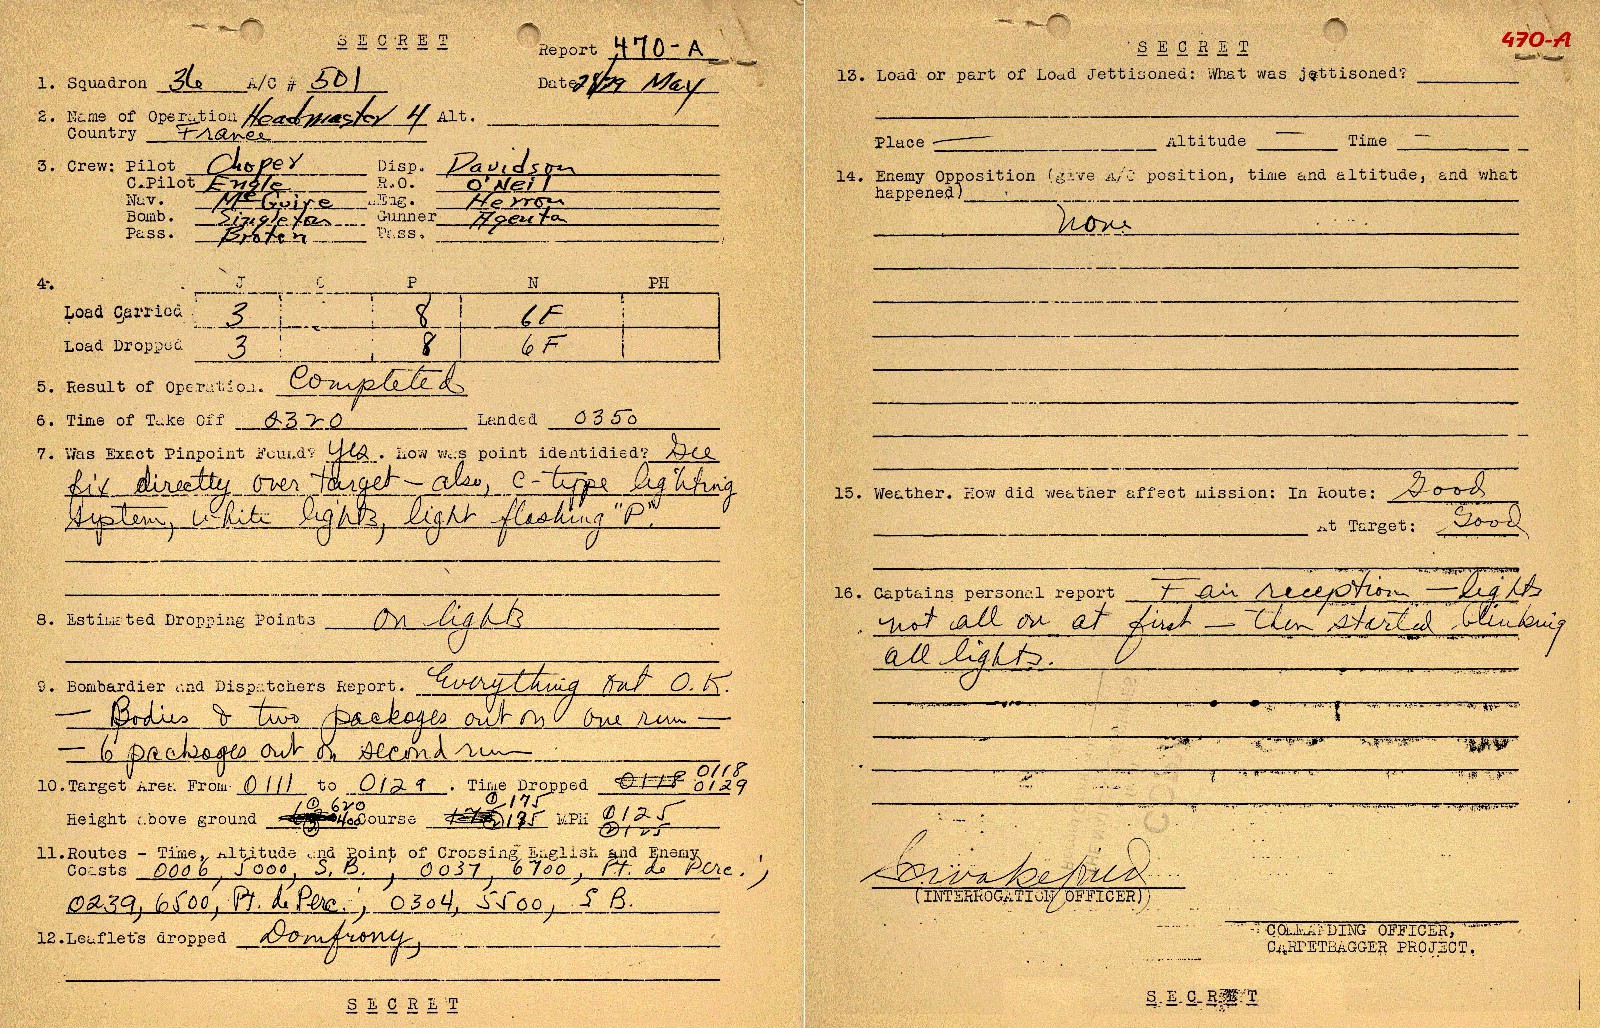 SECRET
Report 470-A
1. Squadron 36 A/C # 501 Date 28/29 May
2. Name of Operation Headmaster 4 Alt.
Country France
3. Crew: Pilot Choper Disp. Davidson
C.Pilot Engle R.O. O'Neil
Nav. McGuire Eng. Herron
Bomb. Singleton Gunner Agenta
Pass. Broten Pass.
4. J C P N PH
Load Carried 3 8 6F
Load Dropped 3 8 6F
5. Result of Operation. Completed
6. Time of Take Off 2320 Landed 0350
7. Was Exact Pinpoint Found? Yes. How was point identidied? Gee
fix directly over target - also, C-type lighting
system, white lights, light flashing "P".
8. Estimated Dropping Points On lights
9. Bombardier and Dispatchers Report. Everything out O.K.
— Bodies & two packages out on one run —
— 6 packages out on second run —
0118
10. Target Area From 0111 to 0129. Time Dropped 0118 0129
① 620 ① 175
Height above ground ② 400 Course ② 135 MPH ① 125
② 125
11. Routes - Time, Altitude and Point of Crossing English and Enemy
Coasts 0006, 5000, S.B., 0037, 6700, Pt. de Perc.;
0239, 6500, Pt. de Perc.; 0304, 5500, S B.
12. Leaflets dropped Domfrony,
SECRET
SECRET
470-A
13. Load or part of Load Jettisoned: What was jettisoned?
Place — Altitude — Time —
14. Enemy Opposition (give A/C position, time and altitude, and what
happened)
None
15. Weather. How did weather affect mission: In Route: Good
At Target: Good
16. Captains personal report Fair reception — lights
not all on at first — then started blinking
all lights.
(INTERROGATION OFFICER)
COMMANDING OFFICER,
CARPETBAGGER PROJECT.
SECRET